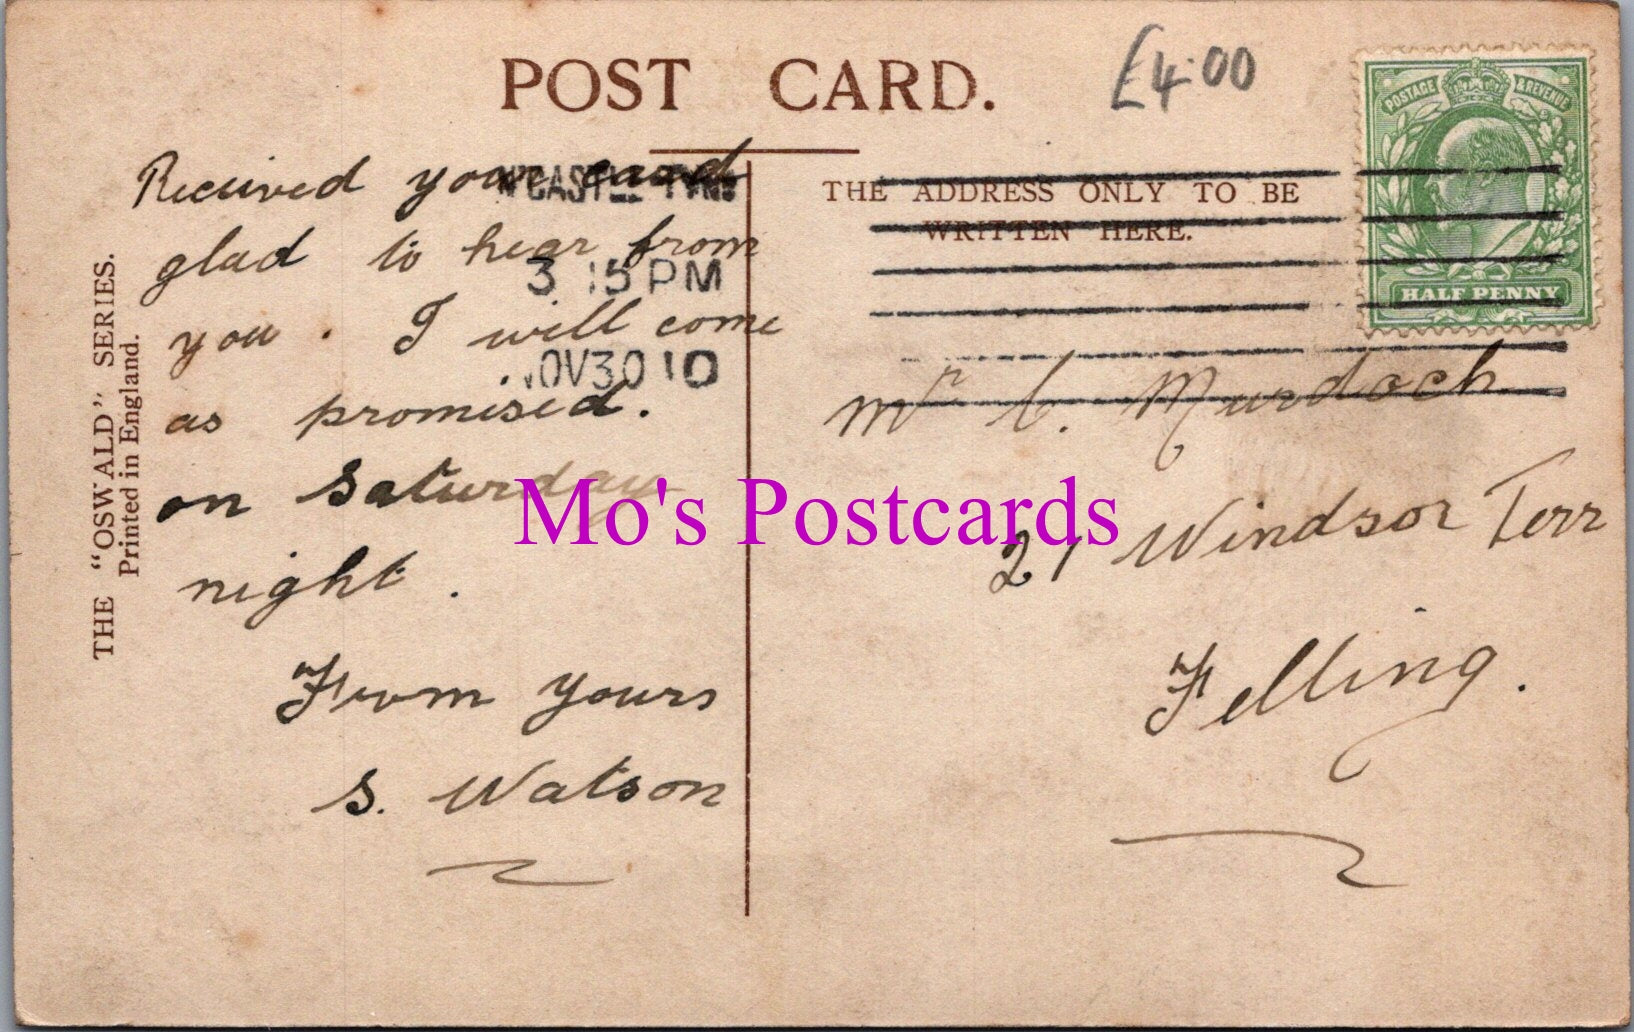 POST CARD.
£4.00
POSTAGE & REVENUE
HALF PENNY
N'CASTLE TYNE
3 15 PM
NOV 30 10
THE ADDRESS ONLY TO BE
WRITTEN HERE.
THE "OSWALD" SERIES.
Printed in England.
Recieved your card
glad to hear from
you. I will come
as promised.
on Saturday
night.
From yours
S. Watson
Mr C. Murdoch
21 Windsor Terr
Felling.
Mo's Postcards